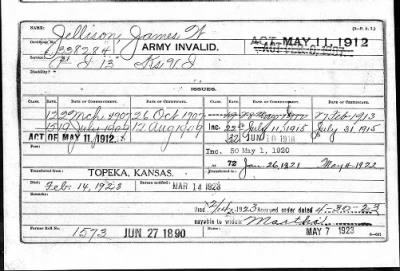 NAME: Jellison, James W
(3—P. S. 7.)
Certificate No. 228284 ARMY INVALID. ACT MAY 11, 1912
Service:
Disability:
ISSUES.
CLASS. RATE. DATE OF COMMENCEMENT. DATE OF CERTIFICATE. CLASS. RATE. DATE OF COMMENCEMENT. DATE OF CERTIFICATE.
12 22 Mch 1907 26 Oct 1907 17 Feb 1913
15 19 July 1909 17 Aug 1909 Inc. 22 July 11, 1915 July 31 1915
ACT OF MAY 11, 1912. 32 JUN 10 1918
Inc. 50 May 1, 1920
72 Jan 26, 1921 May 4 1922
TOPEKA, KANSAS.
Feb. 14, 1923 MAR 14 1923
Died 1923 Accrued order dated 4-30-23
payable to widow Martha
Former Roll No. 1573 JUN 27 1890 MAY 7 1923